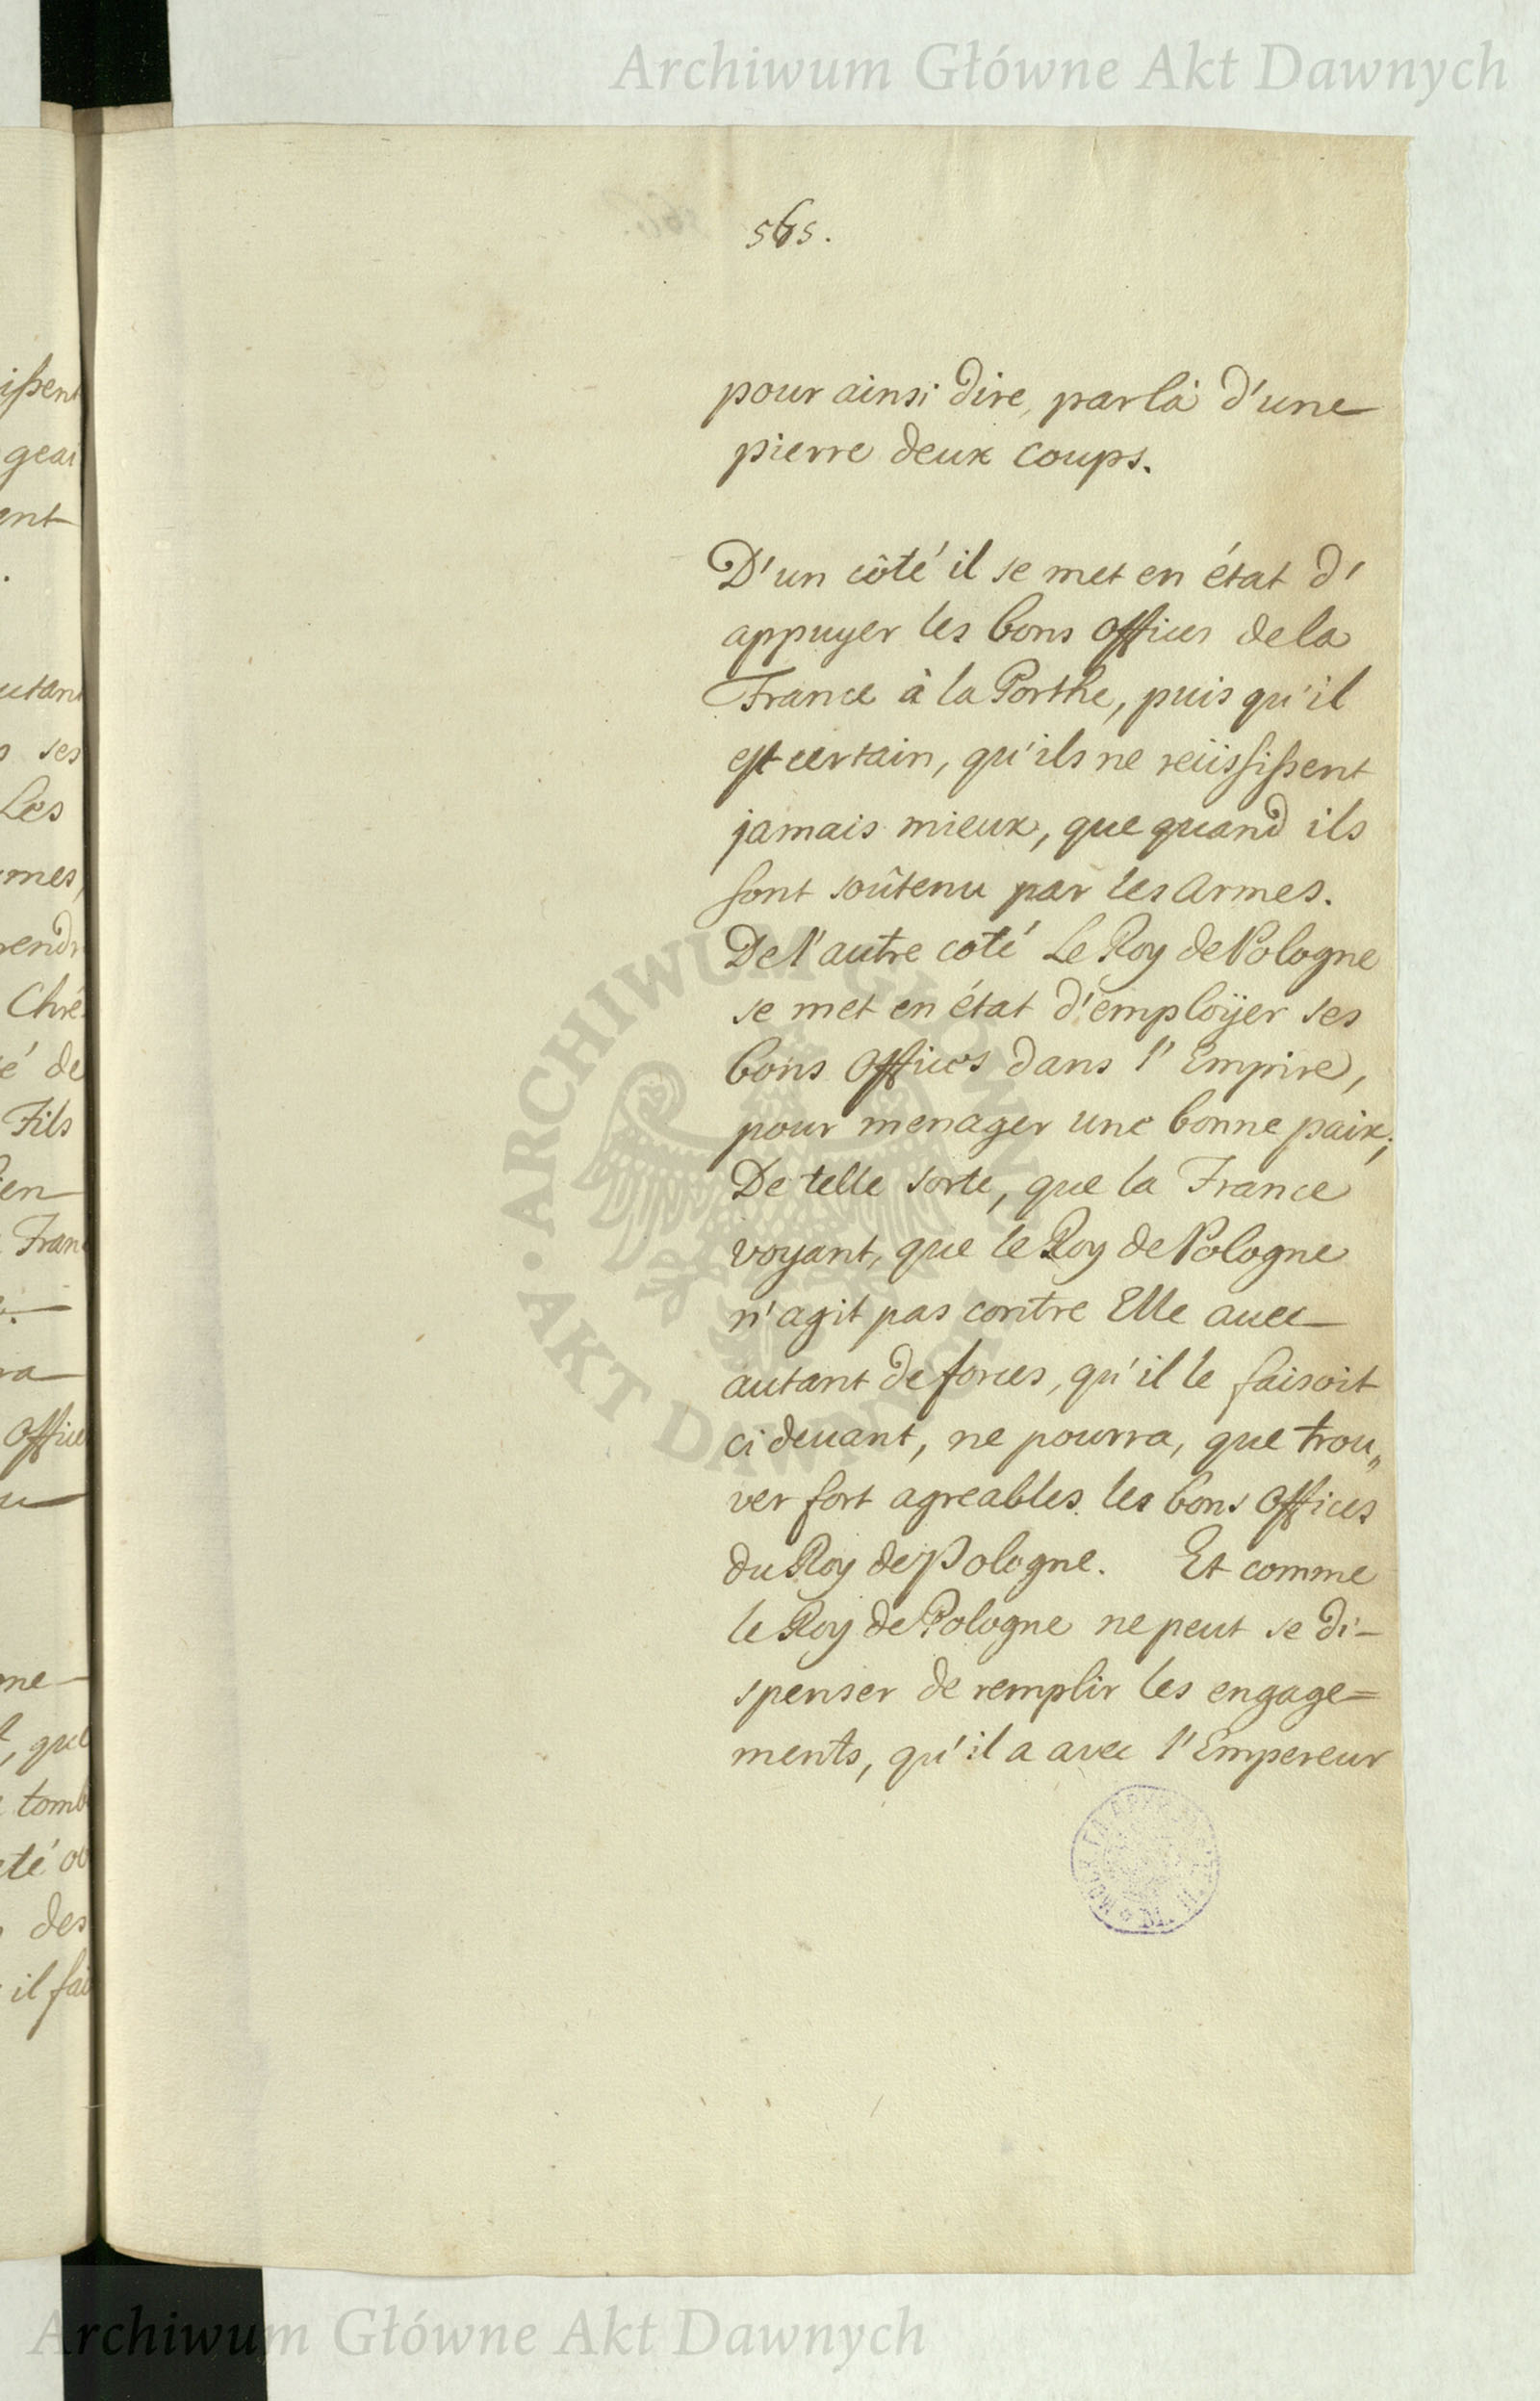 Archiwum Główne Akt Dawnych
565.
pour ainsi dire, par là d'une
pierre deux coups.
D'un côté il se met en état d'
appuyer les bons offices de la
France à la Porthe, puis qu'il
est certain, qu'ils ne reüississent
jamais mieux, que quand ils
sont soûtenu par les armes.
De l'autre coté Le Roy de Pologne
se met en état d'emploÿer ses
bons offices dans l'Empire,
pour menager une bonne paix;
De telle sorte, que la France
voyant, que le Roy de Pologne
n'agit pas contre Elle auec
autant de forces, qu'il le faisoit
ci deuant, ne pourra, que trou„
ver fort agreables les bons offices
du Roy de Pologne. Et comme
le Roy de Pologne ne peut se di-
spenser de remplir les engage=
ments, qu'il a avec l'Empereur
ARCHIWUM GŁÓWNE
AKT DAWNYCH
issent
geai
ent
utant
ses
Les
mes,
rendr
Chré
é de
Fils
en
Franc
ra
offices
me
, que
tomb
té ou
des
il fai
Archiwum Główne Akt Dawnych